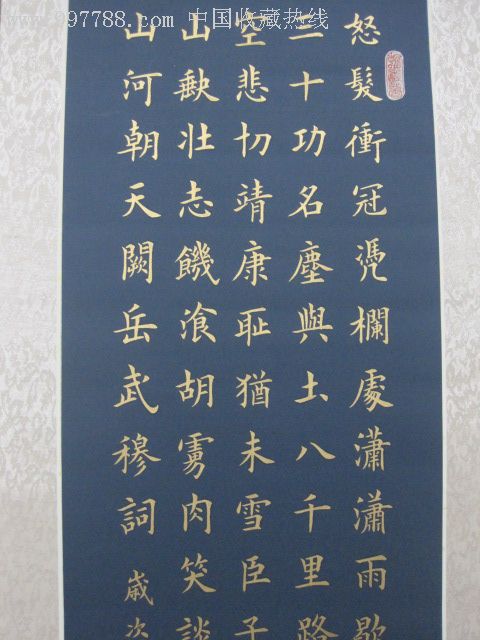 www.997788.com 中国收藏热线
怒髮衝冠凴欄處瀟瀟雨歇
三十功名塵與土八千里路
空悲切靖康耻猶未雪臣子
山缺壯志饑湌胡虜肉笑談
山河朝天闕岳武穆詞 歲次